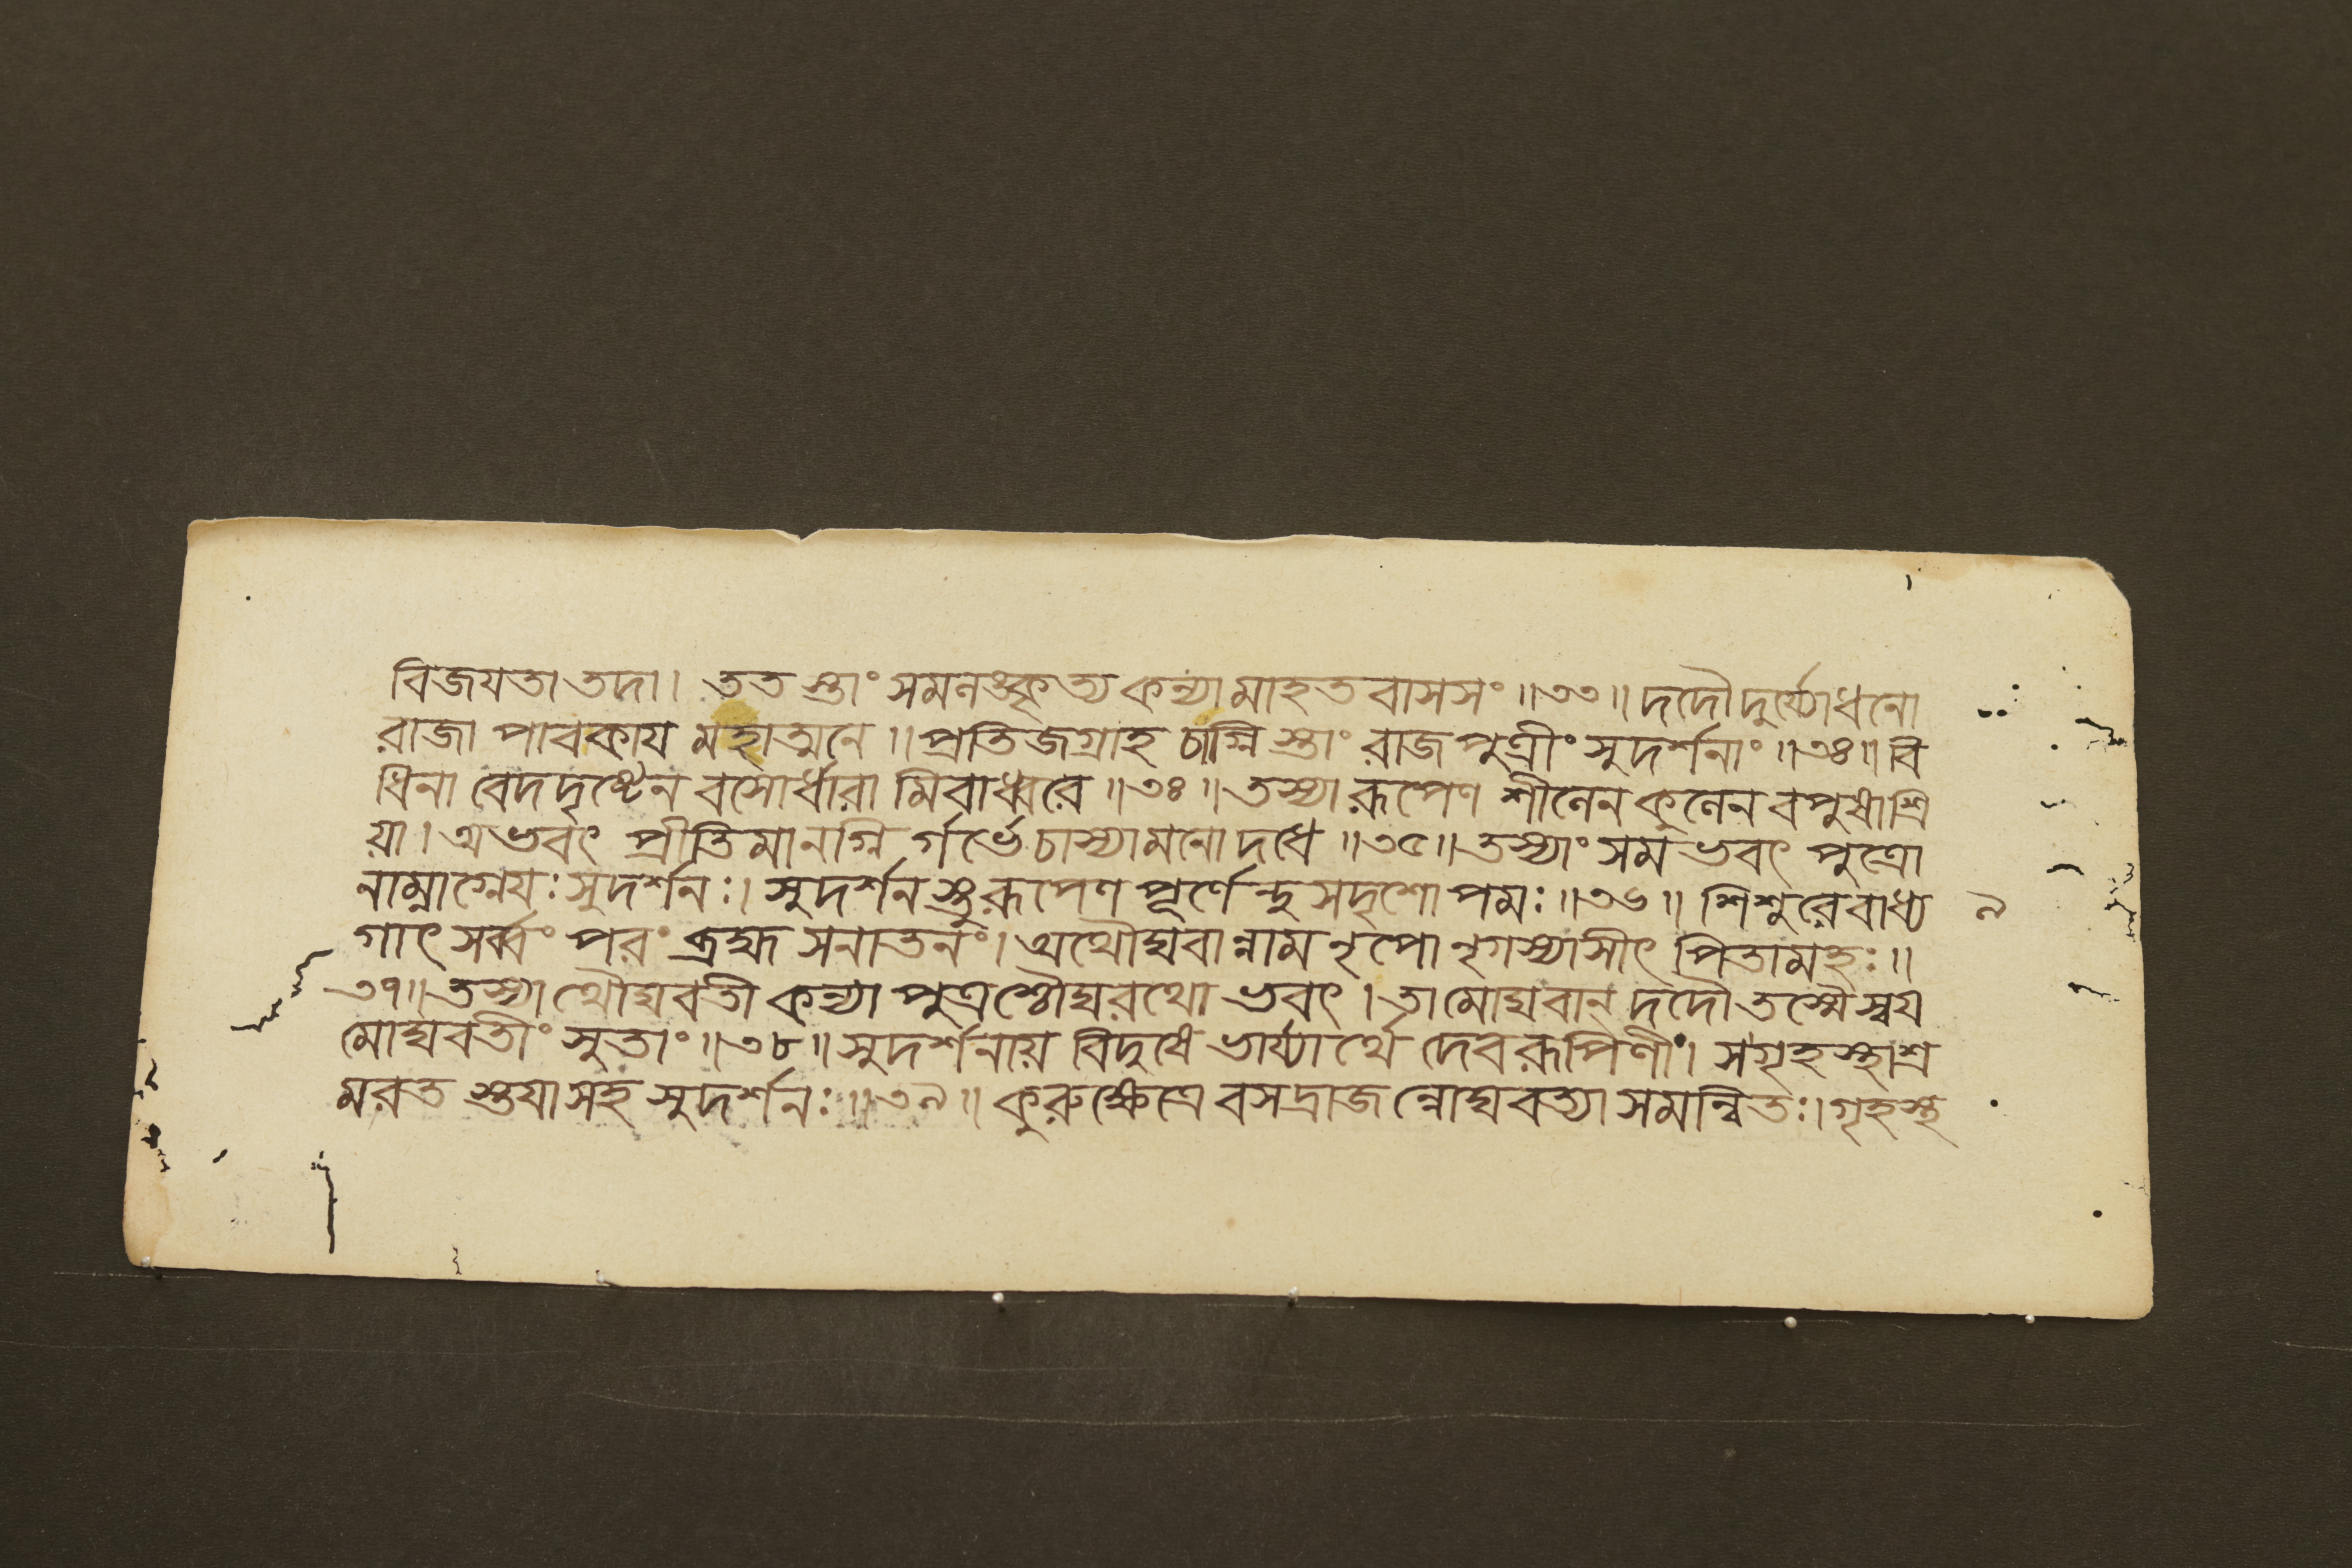 বিজযতা তদা। ততস্তাং সমলঙ্কৃত্য কন্যামাহতবাসসং॥৩৩॥ দদৌ দুর্য্যোধনো
রাজা পাবকায মহাত্মনে॥ প্রতিজগ্রাহ চাগ্নিস্তাং রাজপুত্রীং সুদর্শনাং॥৩৪॥ বি
ধিনা বেদদৃষ্টেন বসোর্ধারামিবাধ্বরে॥৩৪॥ তস্যা রূপেণ শীলেন কুলেন বপুষা শ্রি
য়া। অভবৎ প্রীতিমানগ্নির্গর্ভে চাস্যা মনো দধে॥৩৫॥ তস্যাং সমভবৎ পুত্রো
নাম্নাগ্নেযঃ সুদর্শনঃ। সুদর্শনস্তু রূপেণ পূর্ণেন্দুসদৃশোপমঃ॥৩৬॥ শিশুরেবাধ্য ৯
গাৎ সর্ব্বং পরং ব্রহ্ম সনাতনং। অথৌঘবান্নাম নৃপো নৃগস্যাসীৎ পিতামহঃ॥
৩৭॥ তস্যাথৌঘবতী কন্যা পুত্রশ্চৌঘরথো ভবৎ। তামোঘবান্ দদৌ তস্মৈ স্বয
মোঘবতীং সুতাং॥৩৮॥ সুদর্শনায় বিদুষে ভার্য্যার্থে দেবরূপিণীং। স গৃহস্থাশ্র
মরতস্তযা সহ সুদর্শনঃ॥৩৯॥ কুরুক্ষেত্রে বসদ্রাজন্নোঘবত্যা সমন্বিতঃ। গৃহস্থ